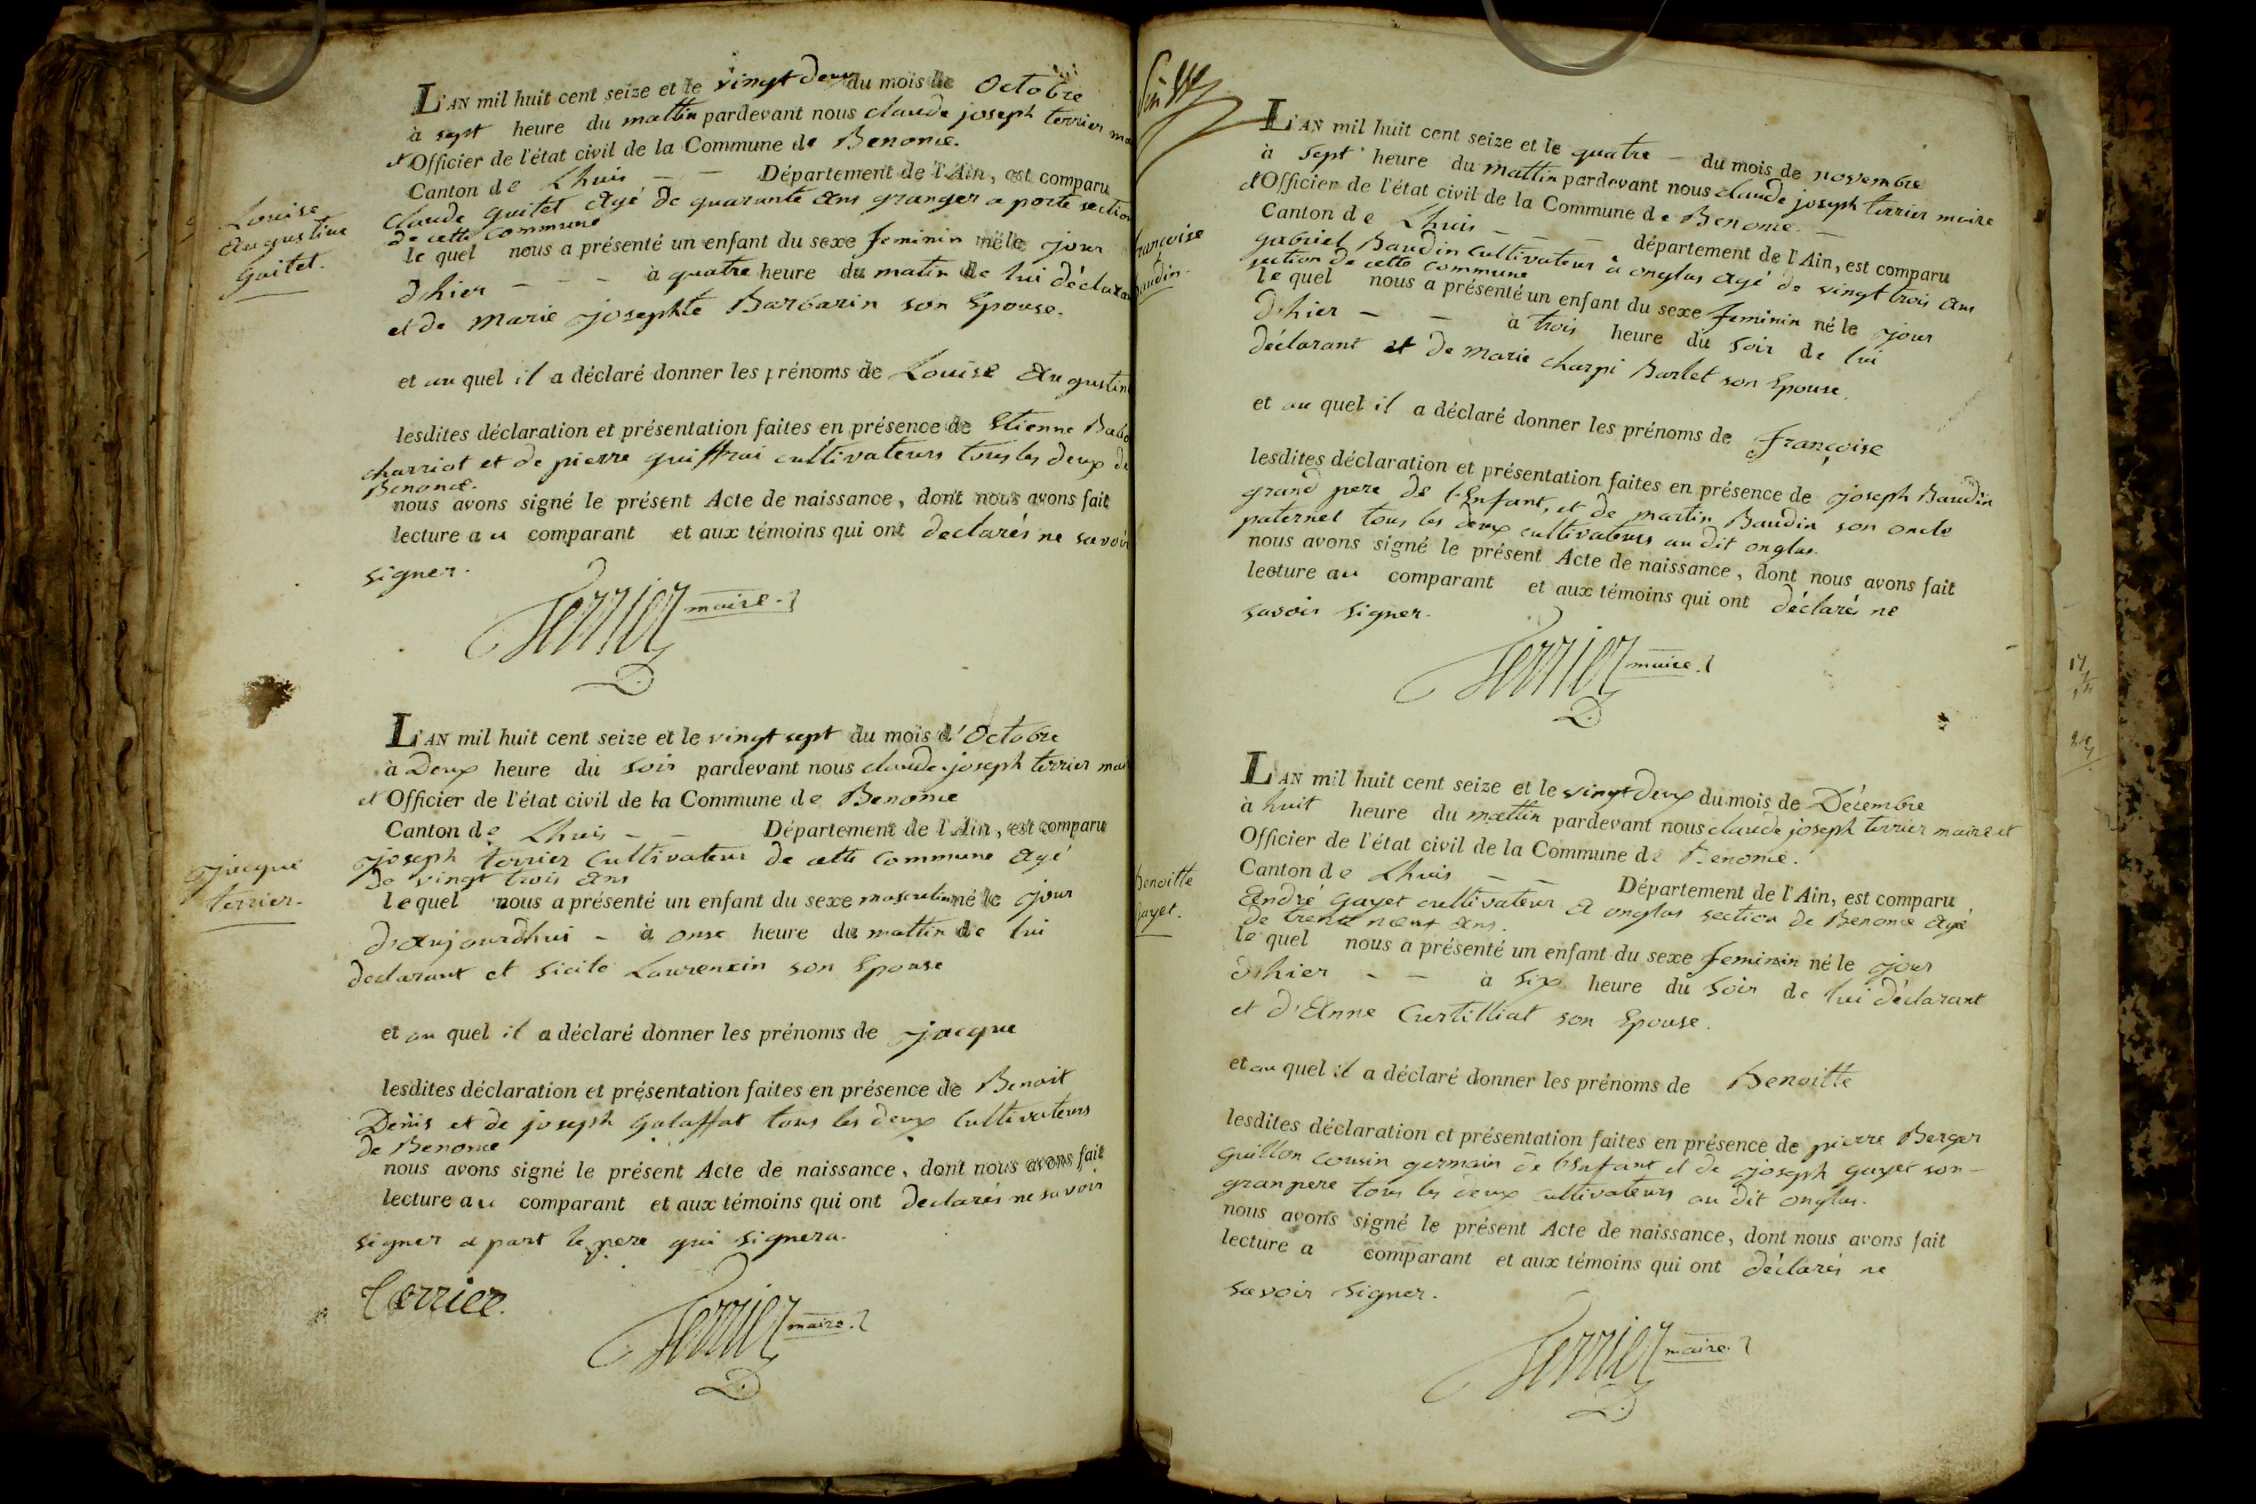 L'AN mil huit cent seize et le vingt deux du mois de Octobre
à sept heure du mattin pardevant nous claude joseph terrier
et Officier de l'état civil de la Commune de Benonce.
Canton de Lhuis — — Département de l'Ain, est comparu
claude guitet Agé de quarante Ans granger a porte section
de cette commune
le quel nous a présenté un enfant du sexe feminin né le jour
d'hier — — — à quatre heure du matin de lui déclarant
et de marie josephte Barbarin son Epouse.
Louise
Augustine
guitet.
et au quel il a déclaré donner les prénoms de Louise Augustine
lesdites déclaration et présentation faites en présence de Etienne
charriot et de pierre guiffrai cultivateurs tous les deux de
Benonce.
nous avons signé le présent Acte de naissance, dont nous avons fait
lecture au comparant et aux témoins qui ont declarés ne savoir
signer.
Terrier maire.
L'AN mil huit cent seize et le vingt sept du mois d'Octobre
à Deux heure du soir pardevant nous claude joseph terrier
et Officier de l'état civil de la Commune de Benonce
Canton de Lhuis — — Département de l'Ain, est comparu
joseph terrier cultivateur de cette commune Agé
de vingt trois ans
le quel nous a présenté un enfant du sexe masculin né le jour
d'aujourdhui — à onse heure du mattin de lui
declarant et sicile Laurencin son Epouse
jacque
terrier.
et au quel il a déclaré donner les prénoms de jacque
lesdites déclaration et présentation faites en présence de Benoit
Denis et de joseph galaffat tous les deux cultivateurs
de Benonce
nous avons signé le présent Acte de naissance, dont nous avons fait
lecture au comparant et aux témoins qui ont declarés ne savoir
signer a part le pere qui signera.
terrier.
Terrier maire.
L'AN mil huit cent seize et le quatre — du mois de novembre
à sept heure du mattin pardevant nous claude joseph terrier maire
et Officier de l'état civil de la Commune de Benonce. —
Canton de Lhuis — — — département de l'Ain, est comparu
gabriel Baudin cultivateur à onglas Agé de vingt trois Ans
section de cette commune
le quel nous a présenté un enfant du sexe feminin né le jour
d'hier — — à trois heure du soir de lui
déclarant et de marie charpi Barlet son Epouse.
françoise
baudin.
et au quel il a déclaré donner les prénoms de françoise
lesdites déclaration et présentation faites en présence de joseph Baudin
grand pere de l'Enfant, et de martin Baudin son oncle
paternel tous les deux cultivateurs au dit onglas.
nous avons signé le présent Acte de naissance, dont nous avons fait
lecture au comparant et aux témoins qui ont déclarés ne
savoir signer.
Terrier maire.
L'AN mil huit cent seize et le vingt deux du mois de Décembre
à huit heure du mattin pardevant nous claude joseph terrier maire et
Officier de l'état civil de la Commune de Benonce.
Canton de Lhuis — — Département de l'Ain, est comparu
André gayet cultivateur A onglas section de Benonce Agé
de trente neuf Ans.
le quel nous a présenté un enfant du sexe feminin né le jour
d'hier — — à six heure du soir de lui déclarant
et d'Anne Curtilliat son Epouse.
benoitte
gayet.
et au quel il a déclaré donner les prénoms de Benoitte
lesdites déclaration et présentation faites en présence de pierre Berger
guillon cousin germain de l'Enfant et de joseph gayet son —
granpere tous les deux cultivateurs au dit onglas.
nous avons signé le présent Acte de naissance, dont nous avons fait
lecture a comparant et aux témoins qui ont déclarés ne
savoir signer.
Terrier maire.